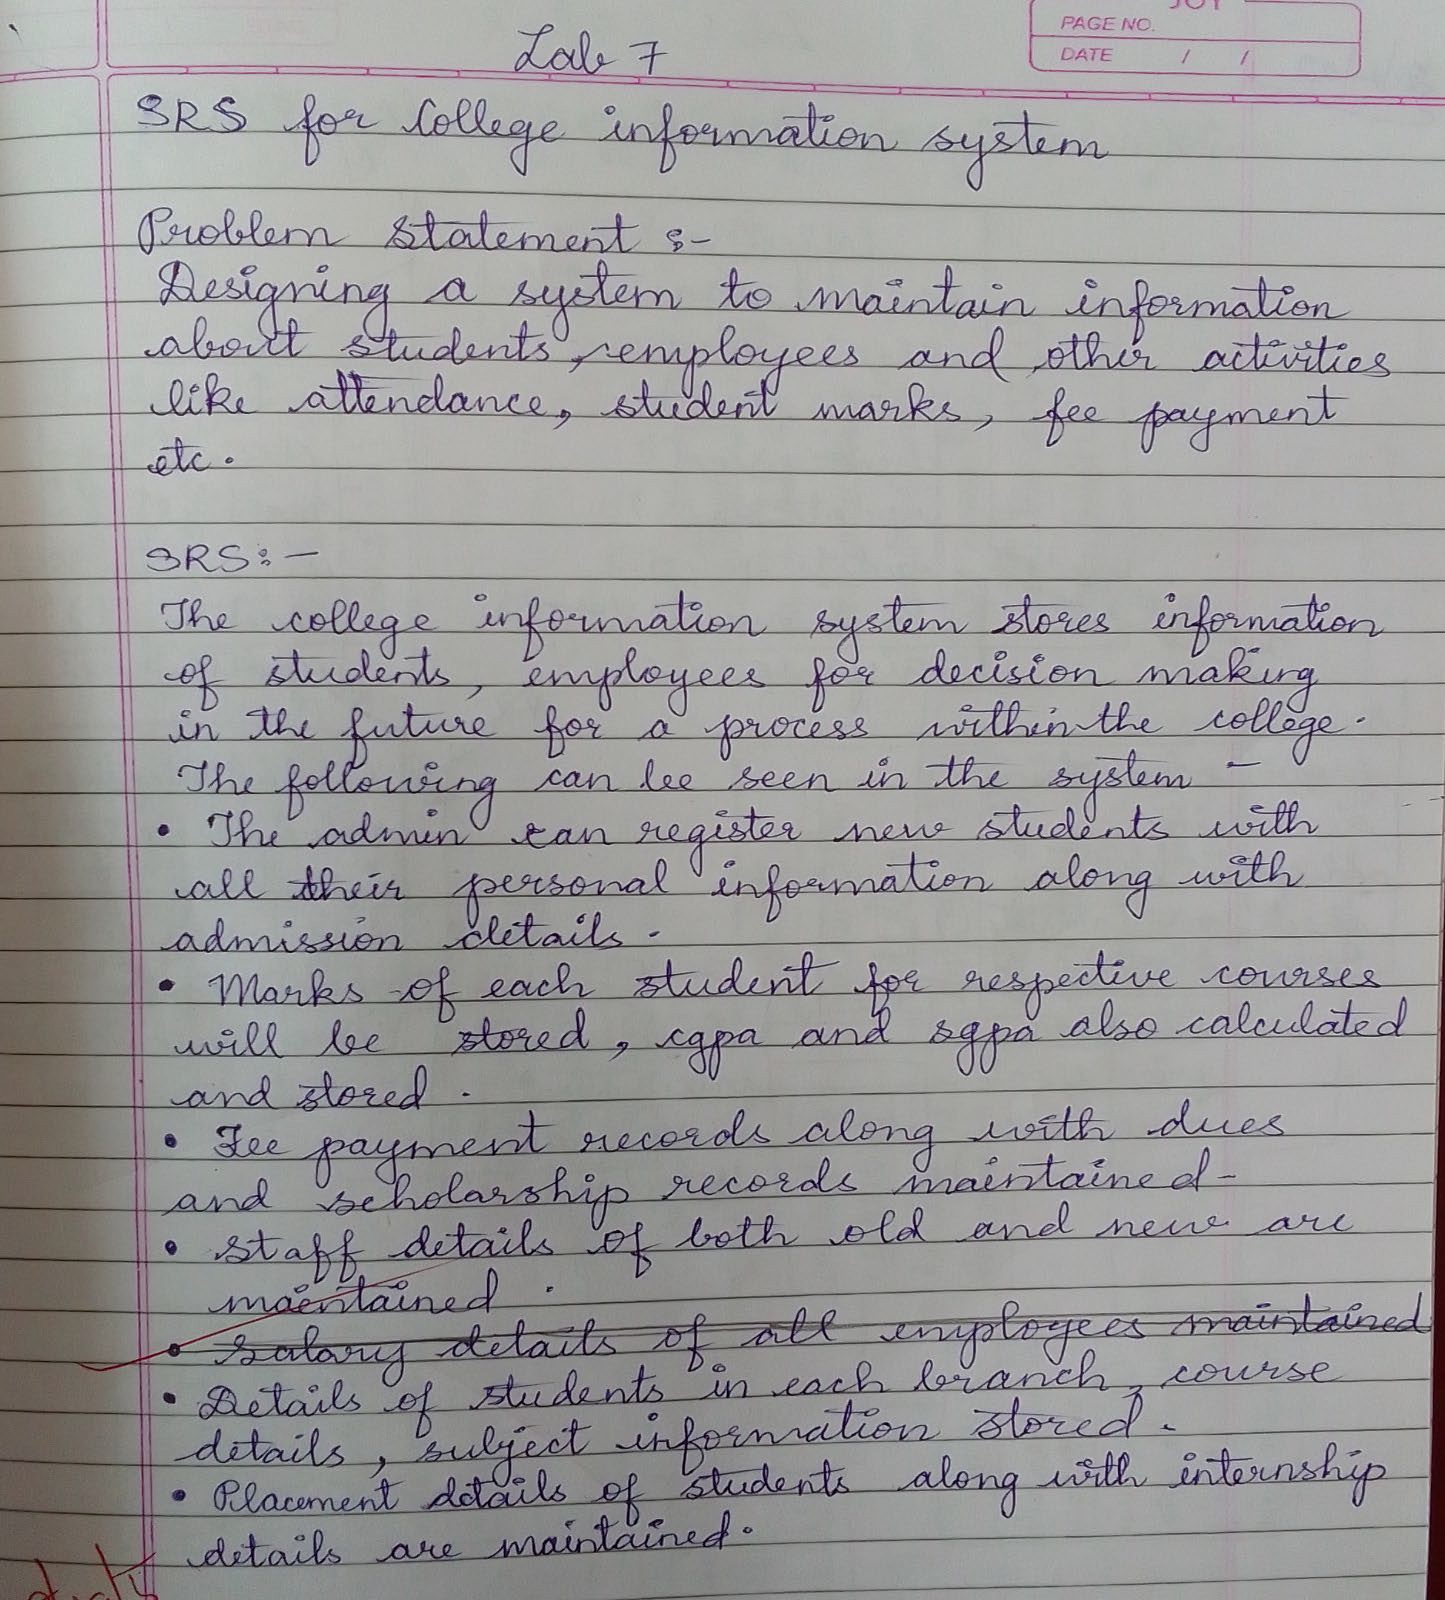 JOY
PAGE NO.
DATE / /
Lab 7
SRS for College information system
Problem statement :-
Designing a system to maintain information
about students, employees and other activities
like attendance, student marks, fee payment
etc.
SRS: -
The college information system stores information
of students, employees for decision making
in the future for a process within the college.
The following can be seen in the system -
• The admin can register new students with
all their personal information along with
admission details.
• Marks of each student for respective courses
will be stored, cgpa and sgpa also calculated
and stored.
• Fee payment records along with dues
and scholarship records maintained-
• Staff details of both old and new are
maintained.
• Salary details of all employees maintained
• Details of students in each branch, course
details, subject information stored.
• Placement details of students along with internship
details are maintained.